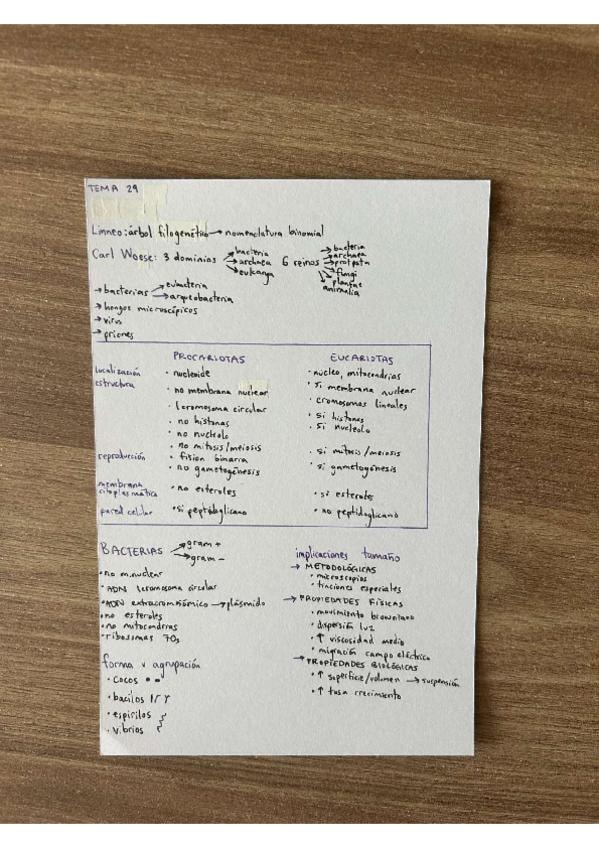 TEMA 29
Linneo: árbol filogenético → nomenclatura binomial
Carl Woese: 3 dominios → bacteria → archaea → eukarya 6 reinos → bacteria → archaea → protista → fungi → plantae animalia
→ bacterias → eubacteria → arqueobacteria
→ hongos microscópicos
→ virus
→ priones
PROCARIOTAS EUCARIOTAS
localización • nucleoide • núcleo, mitocondrias
estructura • no membrana nuclear • si membrana nuclear
• 1 cromosoma circular • cromosomas lineales
• no histonas • si histonas
• no nucleolo • si nucleolo
• no mitosis/meiosis • si mitosis/meiosis
reproducción • fisión binaria
• no gametogénesis • si gametogénesis
membrana citoplasmática • no esteroles • si esteroles
pared celular • si peptidoglicano • no peptidoglicano
BACTERIAS → gram + → gram -
• no m. nuclear
• ADN 1 cromosoma circular
• ADN extracromosómico → plásmido
• no esteroles
• no mitocondrias
• ribosomas 70s
forma y agrupación
• cocos
• bacilos
• espirilos
• vibrios
implicaciones tamaño
→ METODOLÓGICAS
• microscopios
• tinciones especiales
→ PROPIEDADES FÍSICAS
• movimiento browniano
• dispersión luz
• ↑ viscosidad medio
• migración campo eléctrico
→ PROPIEDADES BIOLÓGICAS
• ↑ superficie/volumen → suspensión
• ↑ tasa crecimiento